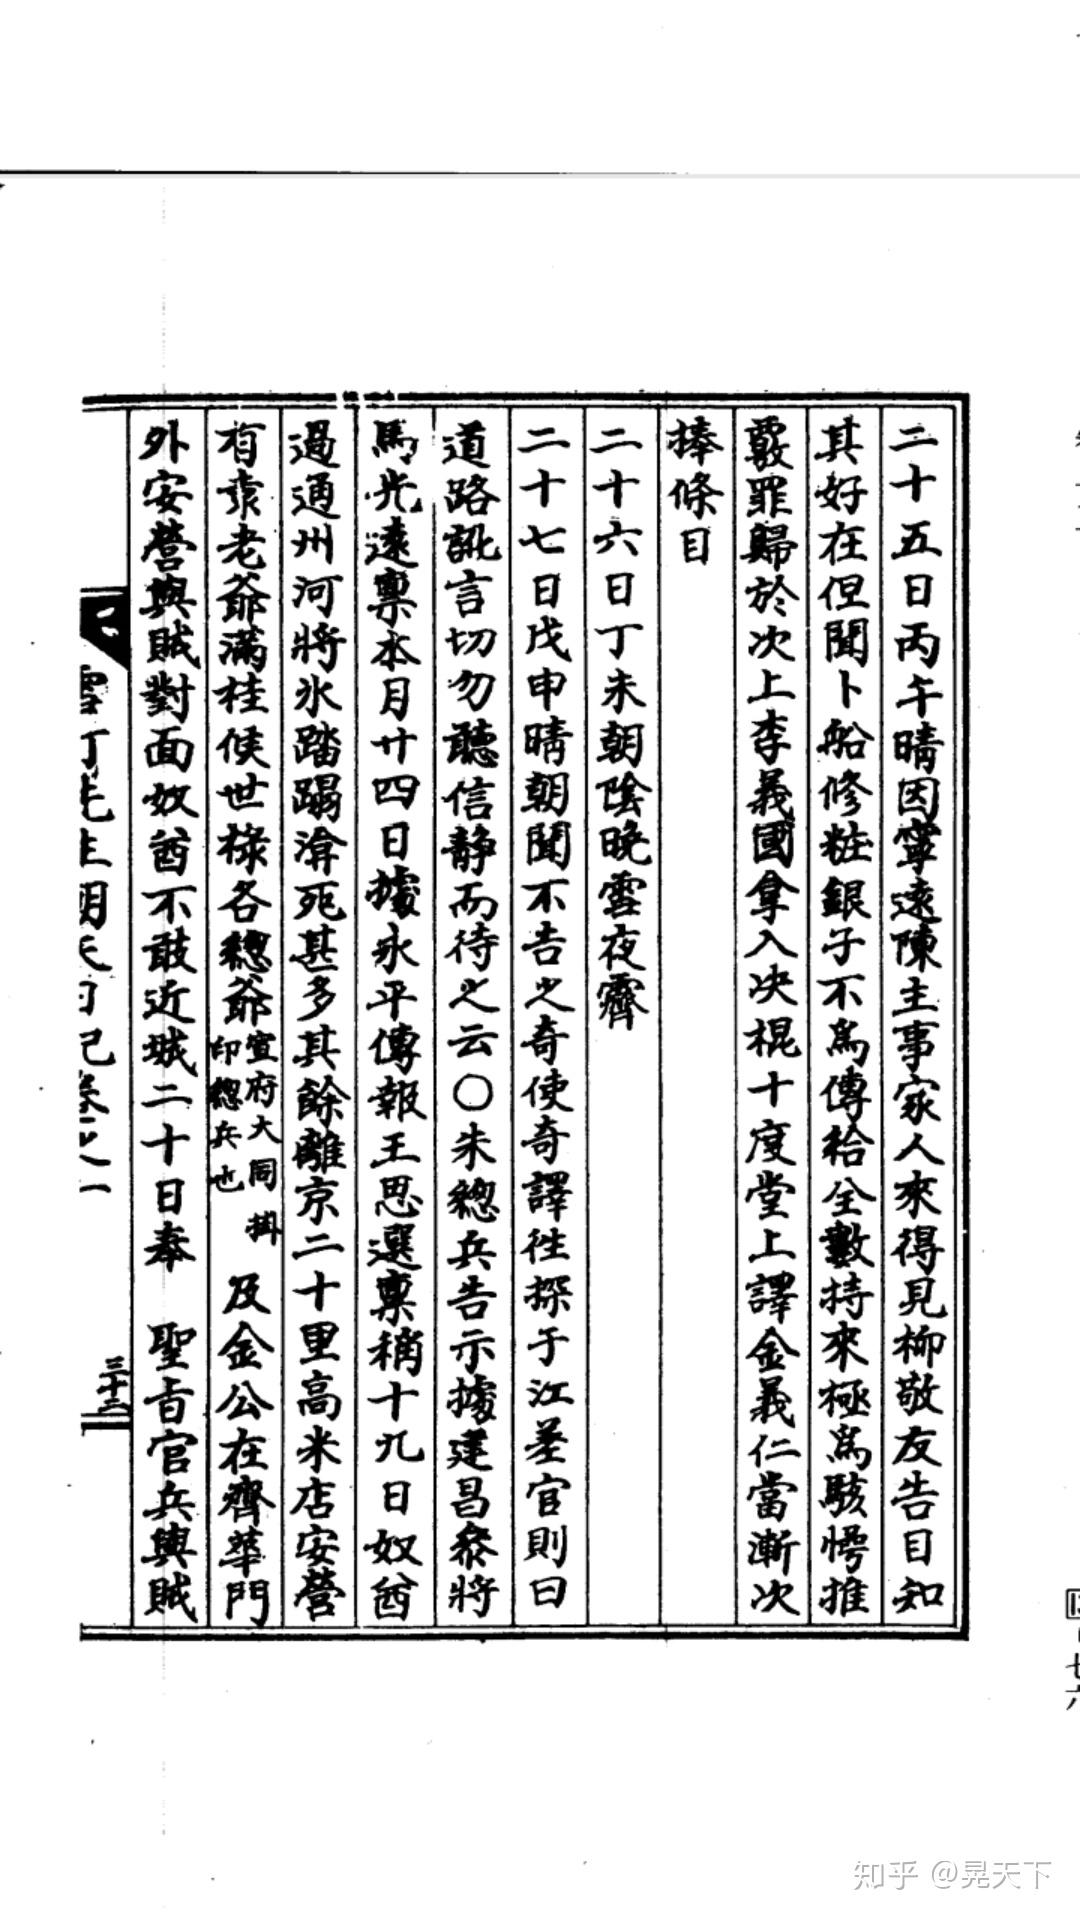 二十五日丙午晴因寧遠陳主事家人來得見柳敬友告目知
其好在但聞卜船修粧銀子不爲傳給全數持來極爲駭愕推
覈罪歸於次上李義國拿入决棍十度堂上譯金義仁當漸次
捧條目
二十六日丁未朝陰晚雪夜霽
二十七日戊申晴朝聞不告之奇使奇譯往探于江差官則曰
道路訛言切勿聽信靜而待之云〇朱總兵告示據建昌叅將
馬光遠禀本月廿四日據永平傳報王思選禀稱十九日奴酋
過通州河將氷踏蹋渰死甚多其餘離京二十里高米店安營
有袁老爺滿桂候世祿各總爺宣府大同掛印總兵也及金公在齊華門
外安營與賊對面奴酋不敢近城二十日奉 聖旨官兵與賊
雪汀先生朝天日記卷之一
三十三
知乎 @晃天下